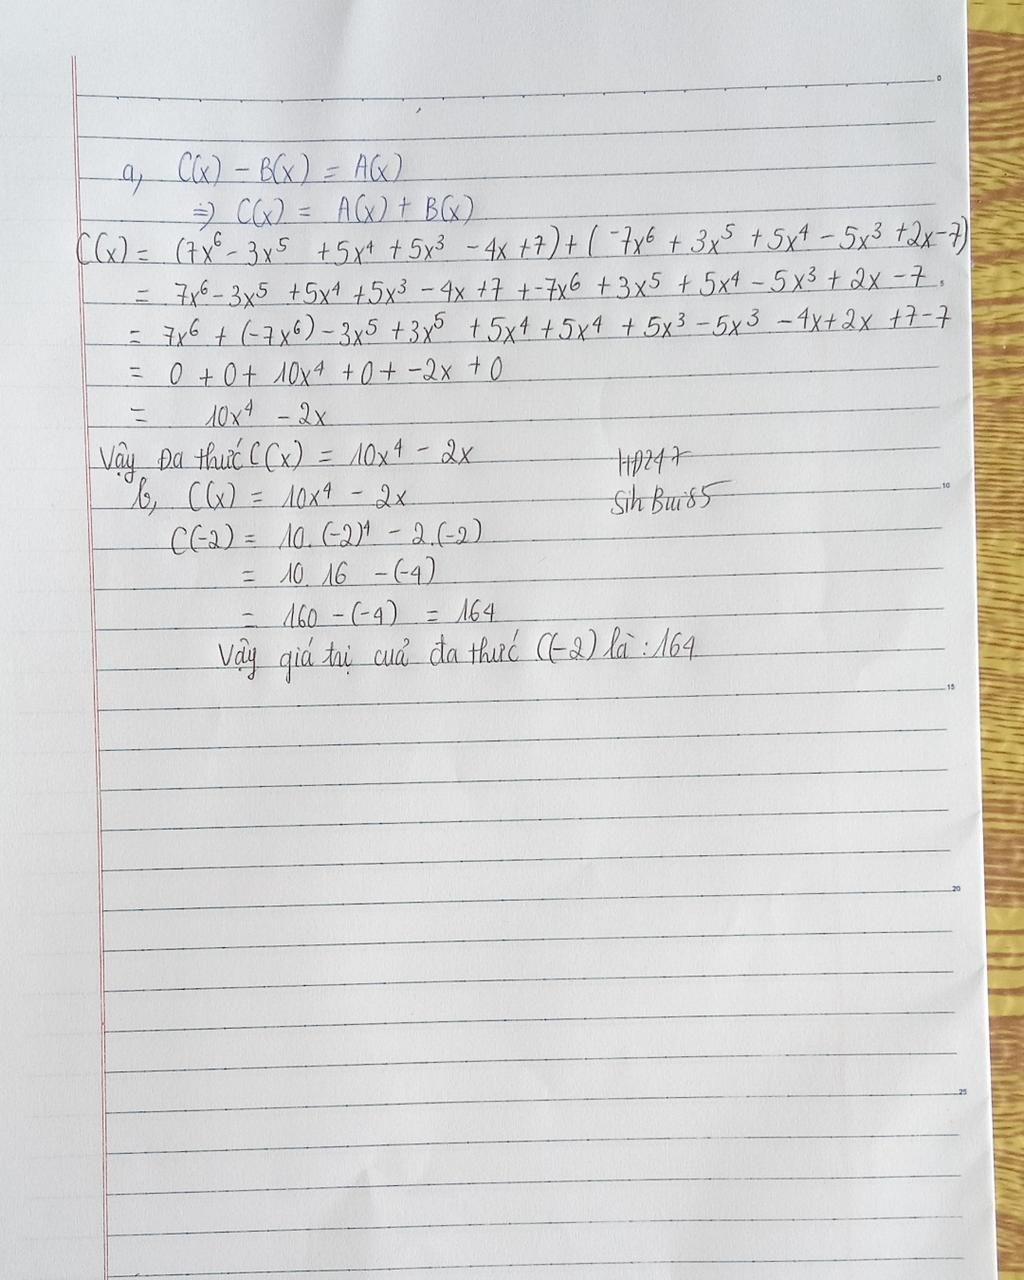 a, C(x) - B(x) = A(x)
=> C(x) = A(x) + B(x)
C(x) = (7x⁶ - 3x⁵ + 5x⁴ + 5x³ - 4x + 7) + (-7x⁶ + 3x⁵ + 5x⁴ - 5x³ + 2x - 7)
= 7x⁶ - 3x⁵ + 5x⁴ + 5x³ - 4x + 7 + -7x⁶ + 3x⁵ + 5x⁴ - 5x³ + 2x - 7.
= 7x⁶ + (-7x⁶) - 3x⁵ + 3x⁵ + 5x⁴ + 5x⁴ + 5x³ - 5x³ - 4x + 2x + 7 - 7
= 0 + 0 + 10x⁴ + 0 + -2x + 0
= 10x⁴ - 2x
Vậy Đa thức C(x) = 10x⁴ - 2x
HD247
b, C(x) = 10x⁴ - 2x
Sih Bui85
C(-2) = 10.(-2)⁴ - 2.(-2)
= 10.16 - (-4)
= 160 - (-4) = 164
Vậy giá trị cuả đa thức C(-2) là : 164
0
10
15
20
25